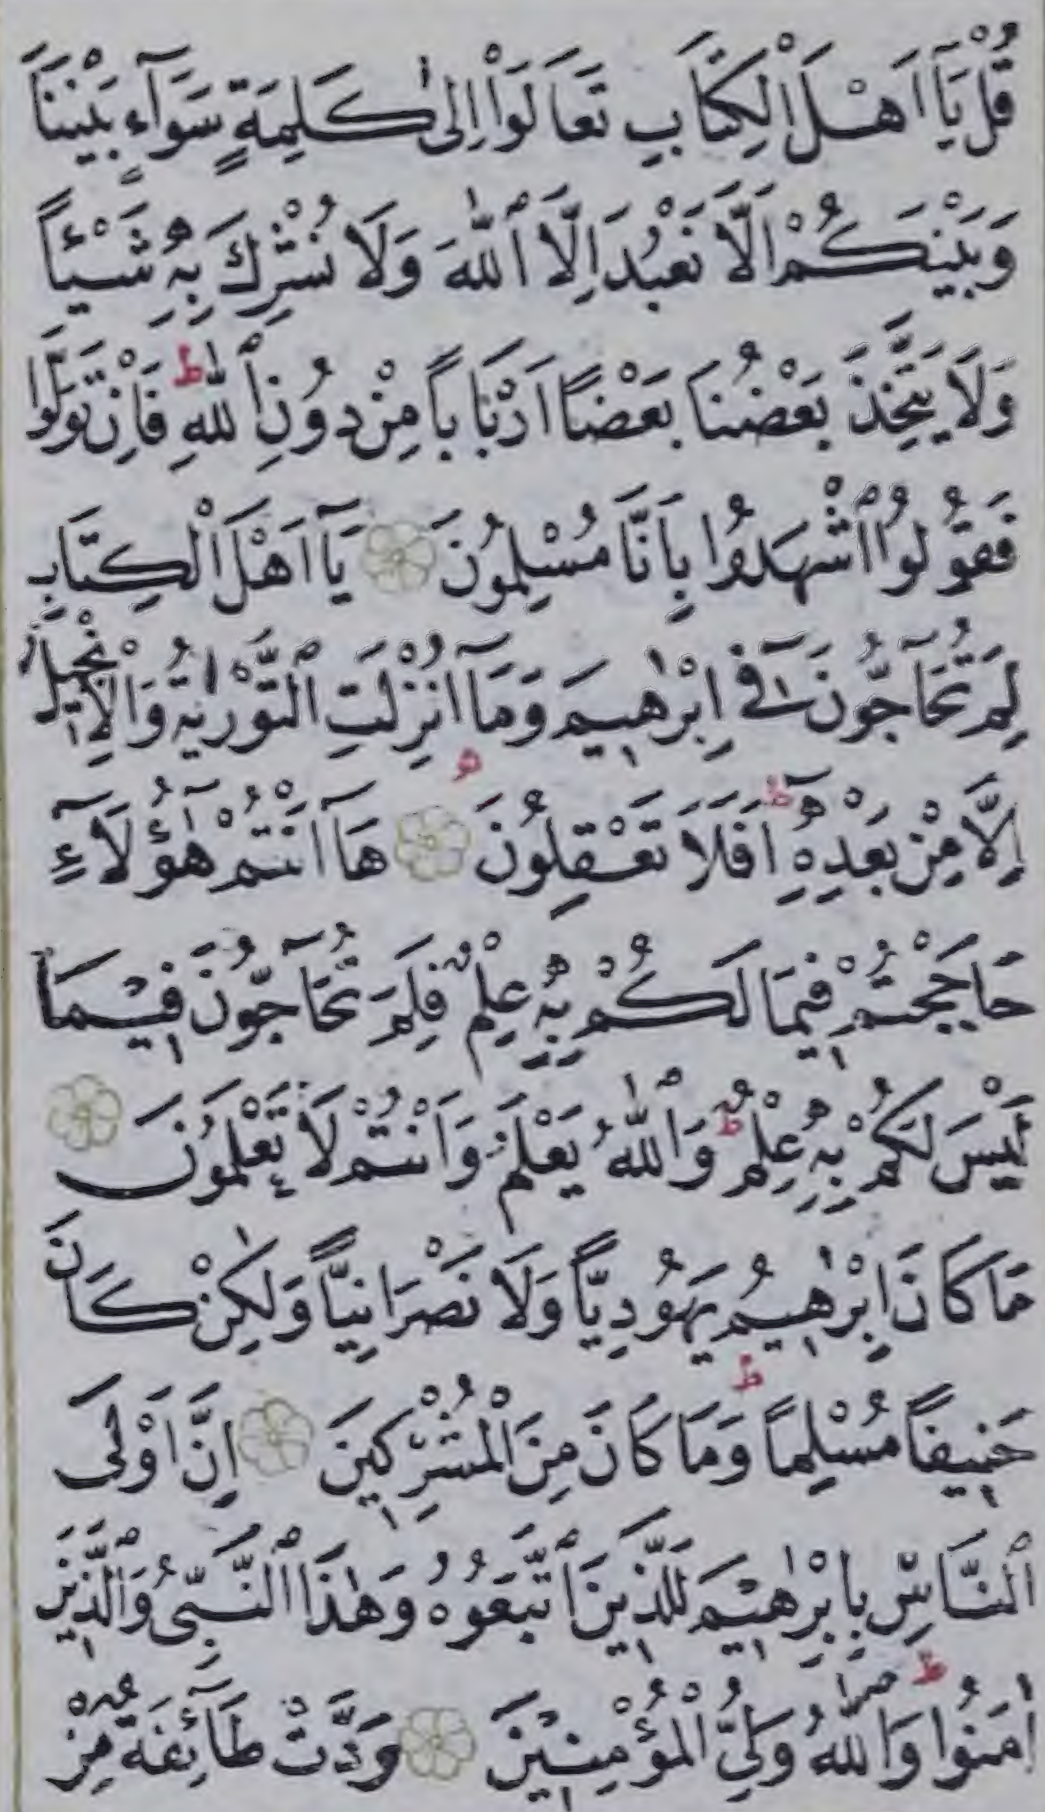 قُلْ يَٓا اَهْلَ الْكِتَابِ تَعَالَوْا اِلٰى كَلِمَةٍ سَوَٓاءٍ بَيْنَنَا
وَبَيْنَكُمْ اَلَّا نَعْبُدَ اِلَّا ٱللّٰهَ وَلَا نُشْرِكَ بِهِ شَيْئًا
وَلَا يَتَّخِذَ بَعْضُنَا بَعْضًا اَرْبَابًا مِنْ دُونِ ٱللّٰهِ ط فَاِنْ تَوَلَّوْا
فَقُولُوا ٱشْهَدُوا بِاَنَّا مُسْلِمُونَ يَٓا اَهْلَ الْكِتَابِ
لِمَ تُحَٓاجُّونَ فِٓى اِبْرٰهِيمَ وَمَٓا اُنْزِلَتِ ٱلتَّوْرٰيةُ وَالْاِنْجِيلُ
اِلَّا مِنْ بَعْدِهِ ط اَفَلَا تَعْقِلُونَ هَٓا اَنْتُمْ هٰٓؤُلَٓاءِ
حَاجَجْتُمْ فِيمَا لَكُمْ بِهِ عِلْمٌ فَلِمَ تُحَٓاجُّونَ فِيمَا
لَيْسَ لَكُمْ بِهِ عِلْمٌ ط وَٱللّٰهُ يَعْلَمُ وَاَنْتُمْ لَا تَعْلَمُونَ
مَا كَانَ اِبْرٰهِيمُ يَهُودِيًّا وَلَا نَصْرَانِيًّا وَلٰكِنْ كَانَ
حَنِيفًا مُسْلِمًا ط وَمَا كَانَ مِنَ الْمُشْرِكِينَ اِنَّ اَوْلَى
ٱلنَّاسِ بِاِبْرٰهِيمَ لَلَّذِينَ ٱتَّبَعُوهُ وَهٰذَا ٱلنَّبِىُّ وَٱلَّذِينَ
اٰمَنُوا ط وَٱللّٰهُ وَلِىُّ الْمُؤْمِنِينَ وَدَّتْ طَٓائِفَةٌ مِنْ